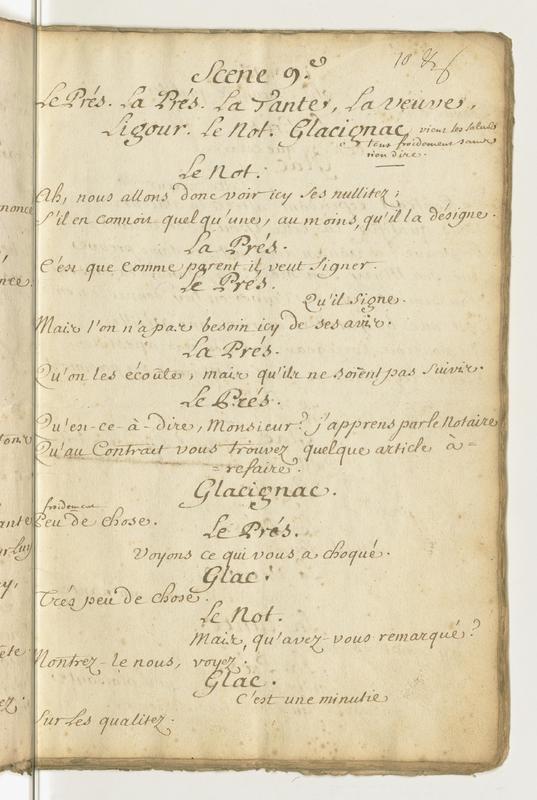 Scene 9.e
Le Prés. La Prés. La Tante, La Veuve,
Ligour. Le Not. Glacignac vient les saluer
tous froidement sans
rien dire.
Le Not.
Ah, nous allons donc voir icy ses nullitez;
S'il en connoit quelqu'une, au moins, qu'il la désigne.
La Prés.
C'est que comme parent il veut signer.
Le Prés.
Qu'il signe.
Mais l'on n'a pas besoin icy de ses avis.
La Prés.
Qu'on les écoûte, mais qu'ils ne soient pas suivis.
Le Prés.
Qu'en-ce-à-dire, Monsieur? j'apprens par le Notaire
Qu'au Contract vous trouvez quelque article à=
=refaire.
Glacignac.
froidement
Peu de chose.
Le Prés.
Voyons ce qui vous a choqué.
Glac.
Trés peu de chose.
Le Not.
Mais, qu'avez-vous remarqué?
Montrez-le nous, voyez.
Glac.
C'est une minutie
Sur les qualitez.